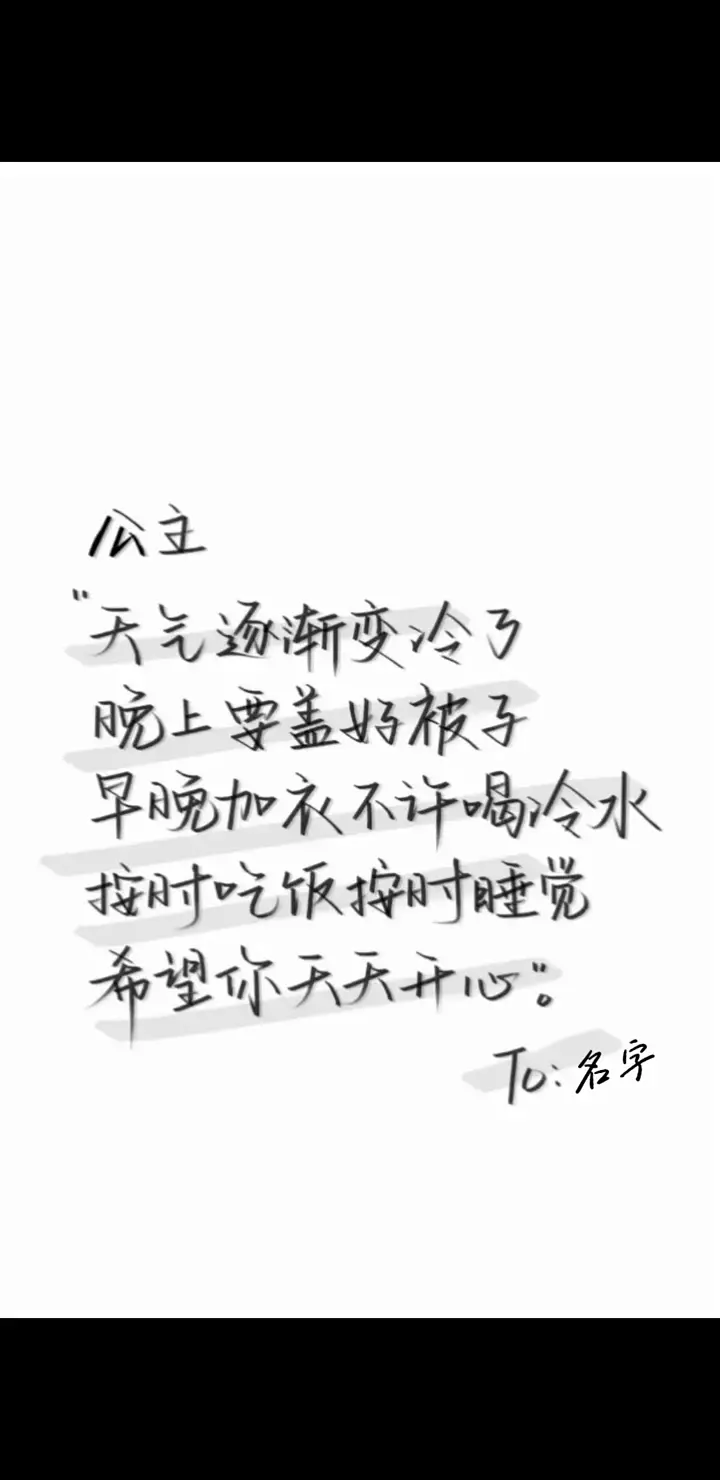 公主
"天气逐渐变冷了
晚上要盖好被子
早晚加衣不许喝冷水
按时吃饭按时睡觉
希望你天天开心"。
To:名字